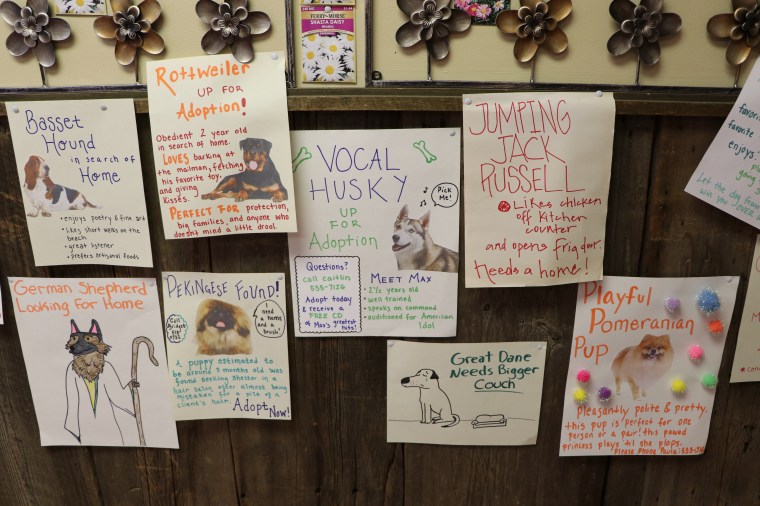 FERRY-MORSE
SHASTA DAISY
Basset
Hound
in search of
Home
• enjoys poetry & fine art
• likes short walks on the
beach
• great listener
• prefers artisanal foods
Rottweiler
UP FOR
Adoption!
Obedient 2 year old
in search of home.
LOVES barking at
the mailman, fetching
his favorite toy,
and giving
Kisses.
PERFECT FOR protection,
big families, and anyone who
doesn't mind a little drool.
VOCAL
HUSKY
UP
FOR
Adoption
Pick
Me!
Questions?
Call Caitlin
555-7126
Adopt today
& receive a
FREE CD
of Max's greatest
hits!
MEET MAX
• 2½ years old
• well trained
• speaks on command
• auditioned for American
Idol
JUMPING
JACK
RUSSELL
Likes chicken
off Kitchen
counter
and opens frig door.
Needs a home!
German Shepherd
Looking For Home
PEKINGESE FOUND!
Call
I
need
a home
and a
brush!
A puppy estimated to
be around 3 months old was
found seeking shelter in a
hair salon after almost being
mistaken for a piece of a
client's hair.
Adopt Now!
Great Dane
Needs Bigger
Couch
Playful
Pomeranian
Pup
Pleasantly polite & pretty,
this pup is perfect for one
person or a pair! this pawed
princess plays til she plops.
Please Phone Paula: 555-
favorite
enjoys:
Let the dog
win you over